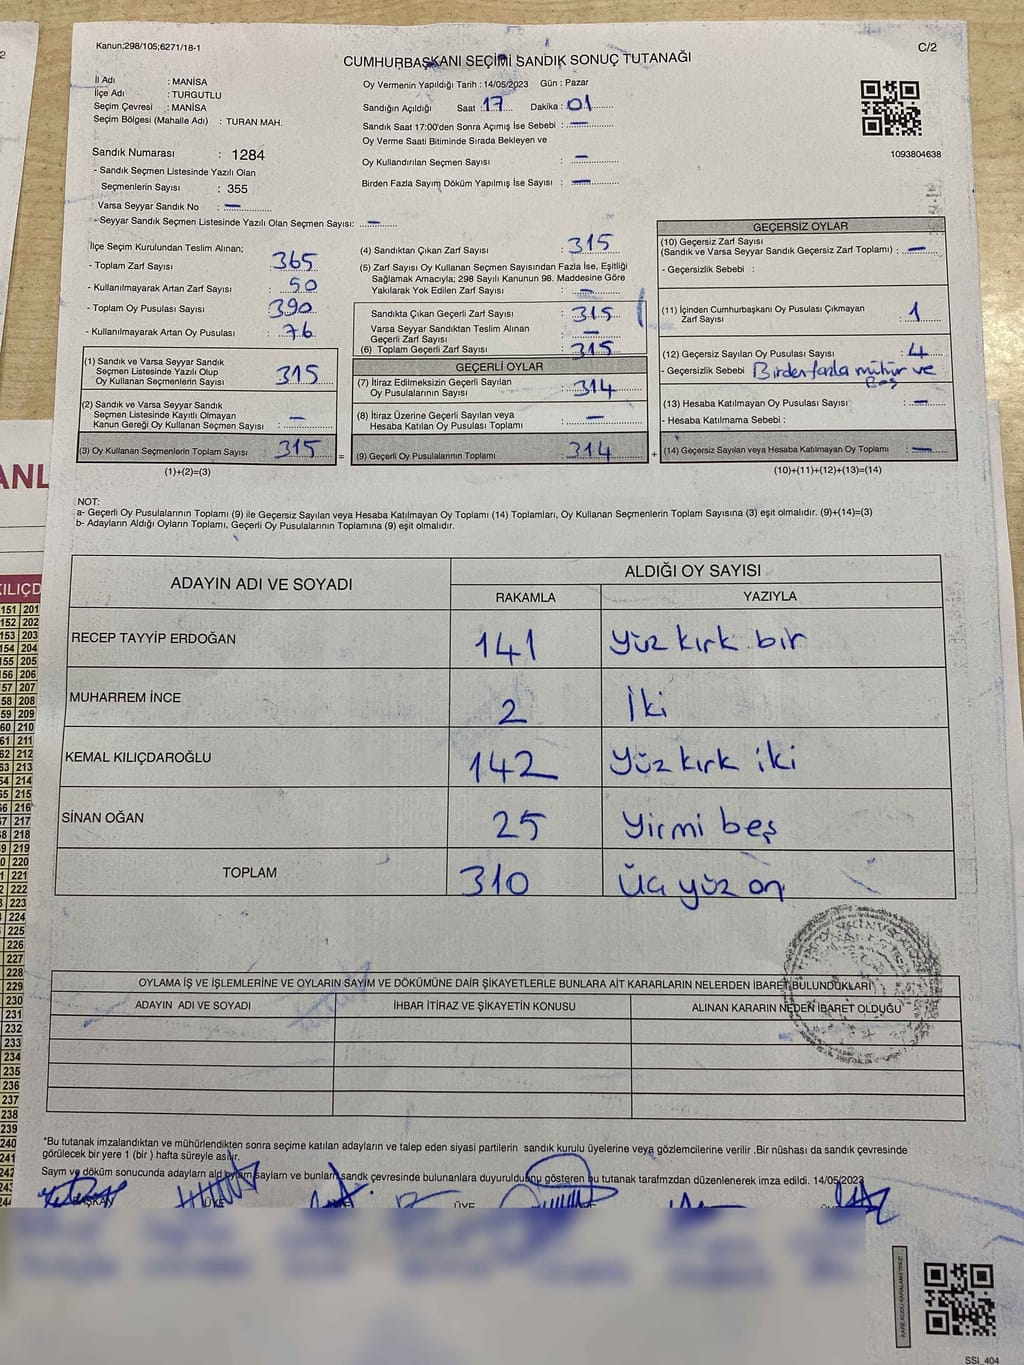 Kanun;298/105;6271/18-1
C/2
CUMHURBAŞKANI SEÇİMİ SANDIK SONUÇ TUTANAĞI
İl Adı : MANİSA
İlçe Adı : TURGUTLU
Seçim Çevresi : MANİSA
Seçim Bölgesi (Mahalle Adı) : TURAN MAH.
Oy Vermenin Yapıldığı Tarih : 14/05/2023 Gün : Pazar
Sandığın Açıldığı Saat : 17 Dakika : 01
Sandık Saat 17:00'den Sonra Açımış İse Sebebi : —
Oy Verme Saati Bitiminde Sırada Bekleyen ve
Oy Kullandırılan Seçmen Sayısı : —
Birden Fazla Sayım Döküm Yapılmış İse Sayısı : —
1093804638
Sandık Numarası : 1284
- Sandık Seçmen Listesinde Yazılı Olan
Seçmenlerin Sayısı : 355
- Varsa Seyyar Sandık No : —
- Seyyar Sandık Seçmen Listesinde Yazılı Olan Seçmen Sayısı: —
İlçe Seçim Kurulundan Teslim Alınan;
- Toplam Zarf Sayısı : 365
- Kullanılmayarak Artan Zarf Sayısı : 50
- Toplam Oy Pusulası Sayısı : 390
- Kullanılmayarak Artan Oy Pusulası : 76
(1) Sandık ve Varsa Seyyar Sandık
Seçmen Listesinde Yazılı Olup
Oy Kullanan Seçmenlerin Sayısı : 315
(2) Sandık ve Varsa Seyyar Sandık
Seçmen Listesinde Kayıtlı Olmayan
Kanun Gereği Oy Kullanan Seçmen Sayısı : —
(3) Oy Kullanan Seçmenlerin Toplam Sayısı 315
(1)+(2)=(3)
(4) Sandıktan Çıkan Zarf Sayısı : 315
(5) Zarf Sayısı Oy Kullanan Seçmen Sayısından Fazla İse, Eşitliği
Sağlamak Amacıyla; 298 Sayılı Kanunun 98. Maddesine Göre
Yakılarak Yok Edilen Zarf Sayısı : —
Sandıkta Çıkan Geçerli Zarf Sayısı : 315
Varsa Seyyar Sandıktan Teslim Alınan
Geçerli Zarf Sayısı : —
(6) Toplam Geçerli Zarf Sayısı : 315
GEÇERLİ OYLAR
(7) İtiraz Edilmeksizin Geçerli Sayılan
Oy Pusulalarının Sayısı : 314
(8) İtiraz Üzerine Geçerli Sayılan veya
Hesaba Katılan Oy Pusulası Toplamı : —
= (9) Geçerli Oy Pusulalarının Toplamı : 314 +
GEÇERSİZ OYLAR
(10) Geçersiz Zarf Sayısı
(Sandık ve Varsa Seyyar Sandık Geçersiz Zarf Toplamı) : —
- Geçersizlik Sebebi :
(11) İçinden Cumhurbaşkanı Oy Pusulası Çıkmayan
Zarf Sayısı : 1
(12) Geçersiz Sayılan Oy Pusulası Sayısı : 4
- Geçersizlik Sebebi Birden fazla mühür ve
Boş
(13) Hesaba Katılmayan Oy Pusulası Sayısı : —
- Hesaba Katılmama Sebebi :
(14) Geçersiz Sayılan veya Hesaba Katılmayan Oy Toplamı : —
(10)+(11)+(12)+(13)=(14)
NOT:
a- Geçerli Oy Pusulalarının Toplamı (9) ile Geçersiz Sayılan veya Hesaba Katılmayan Oy Toplamı (14) Toplamları, Oy Kullanan Seçmenlerin Toplam Sayısına (3) eşit olmalıdır. (9)+(14)=(3)
b- Adayların Aldığı Oyların Toplamı, Geçerli Oy Pusulalarının Toplamına (9) eşit olmalıdır.
ADAYIN ADI VE SOYADI ALDIĞI OY SAYISI
RAKAMLA YAZIYLA
RECEP TAYYİP ERDOĞAN 141 Yüz kırk bir
MUHARREM İNCE 2 İki
KEMAL KILIÇDAROĞLU 142 Yüz kırk iki
SİNAN OĞAN 25 Yirmi beş
TOPLAM 310 Üç yüz on
OYLAMA İŞ VE İŞLEMLERİNE VE OYLARIN SAYIM VE DÖKÜMÜNE DAİR ŞİKAYETLERLE BUNLARA AİT KARARLARIN NELERDEN İBARET BULUNDUKLARI
ADAYIN ADI VE SOYADI İHBAR İTİRAZ VE ŞİKAYETİN KONUSU ALINAN KARARIN NEDEN İBARET OLDUĞU
*Bu tutanak imzalandıktan ve mühürlendikten sonra seçime katılan adayların ve talep eden siyasi partilerin sandık kurulu üyelerine veya gözlemcilerine verilir .Bir nüshası da sandık çevresinde
görülecek bir yere 1 (bir ) hafta süreyle asılır.
Sayım ve döküm sonucunda adayların aldığı oyların sayıları ve bunların sandık çevresinde bulunanlara duyurulduğunu gösteren bu tutanak tarafımızdan düzenlenerek imza edildi. 14/05/2023
BAŞKAN ÜYE ÜYE
SSİ_404